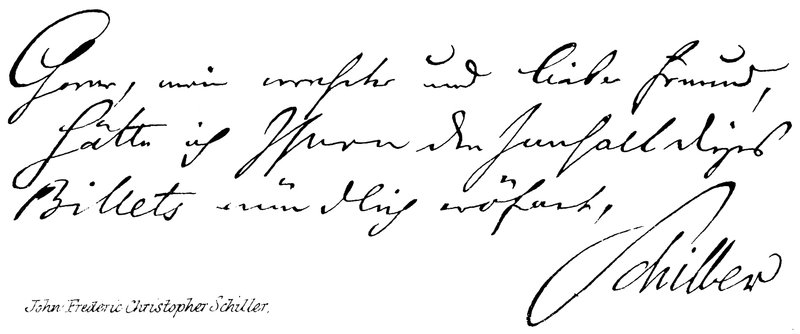 Gerne, mein werther und lieber Freund,
hätte ich Ihnen den Innhalt dieses
Billets mündlich eröfnet,
Schiller
John Frederic Christopher Schiller.